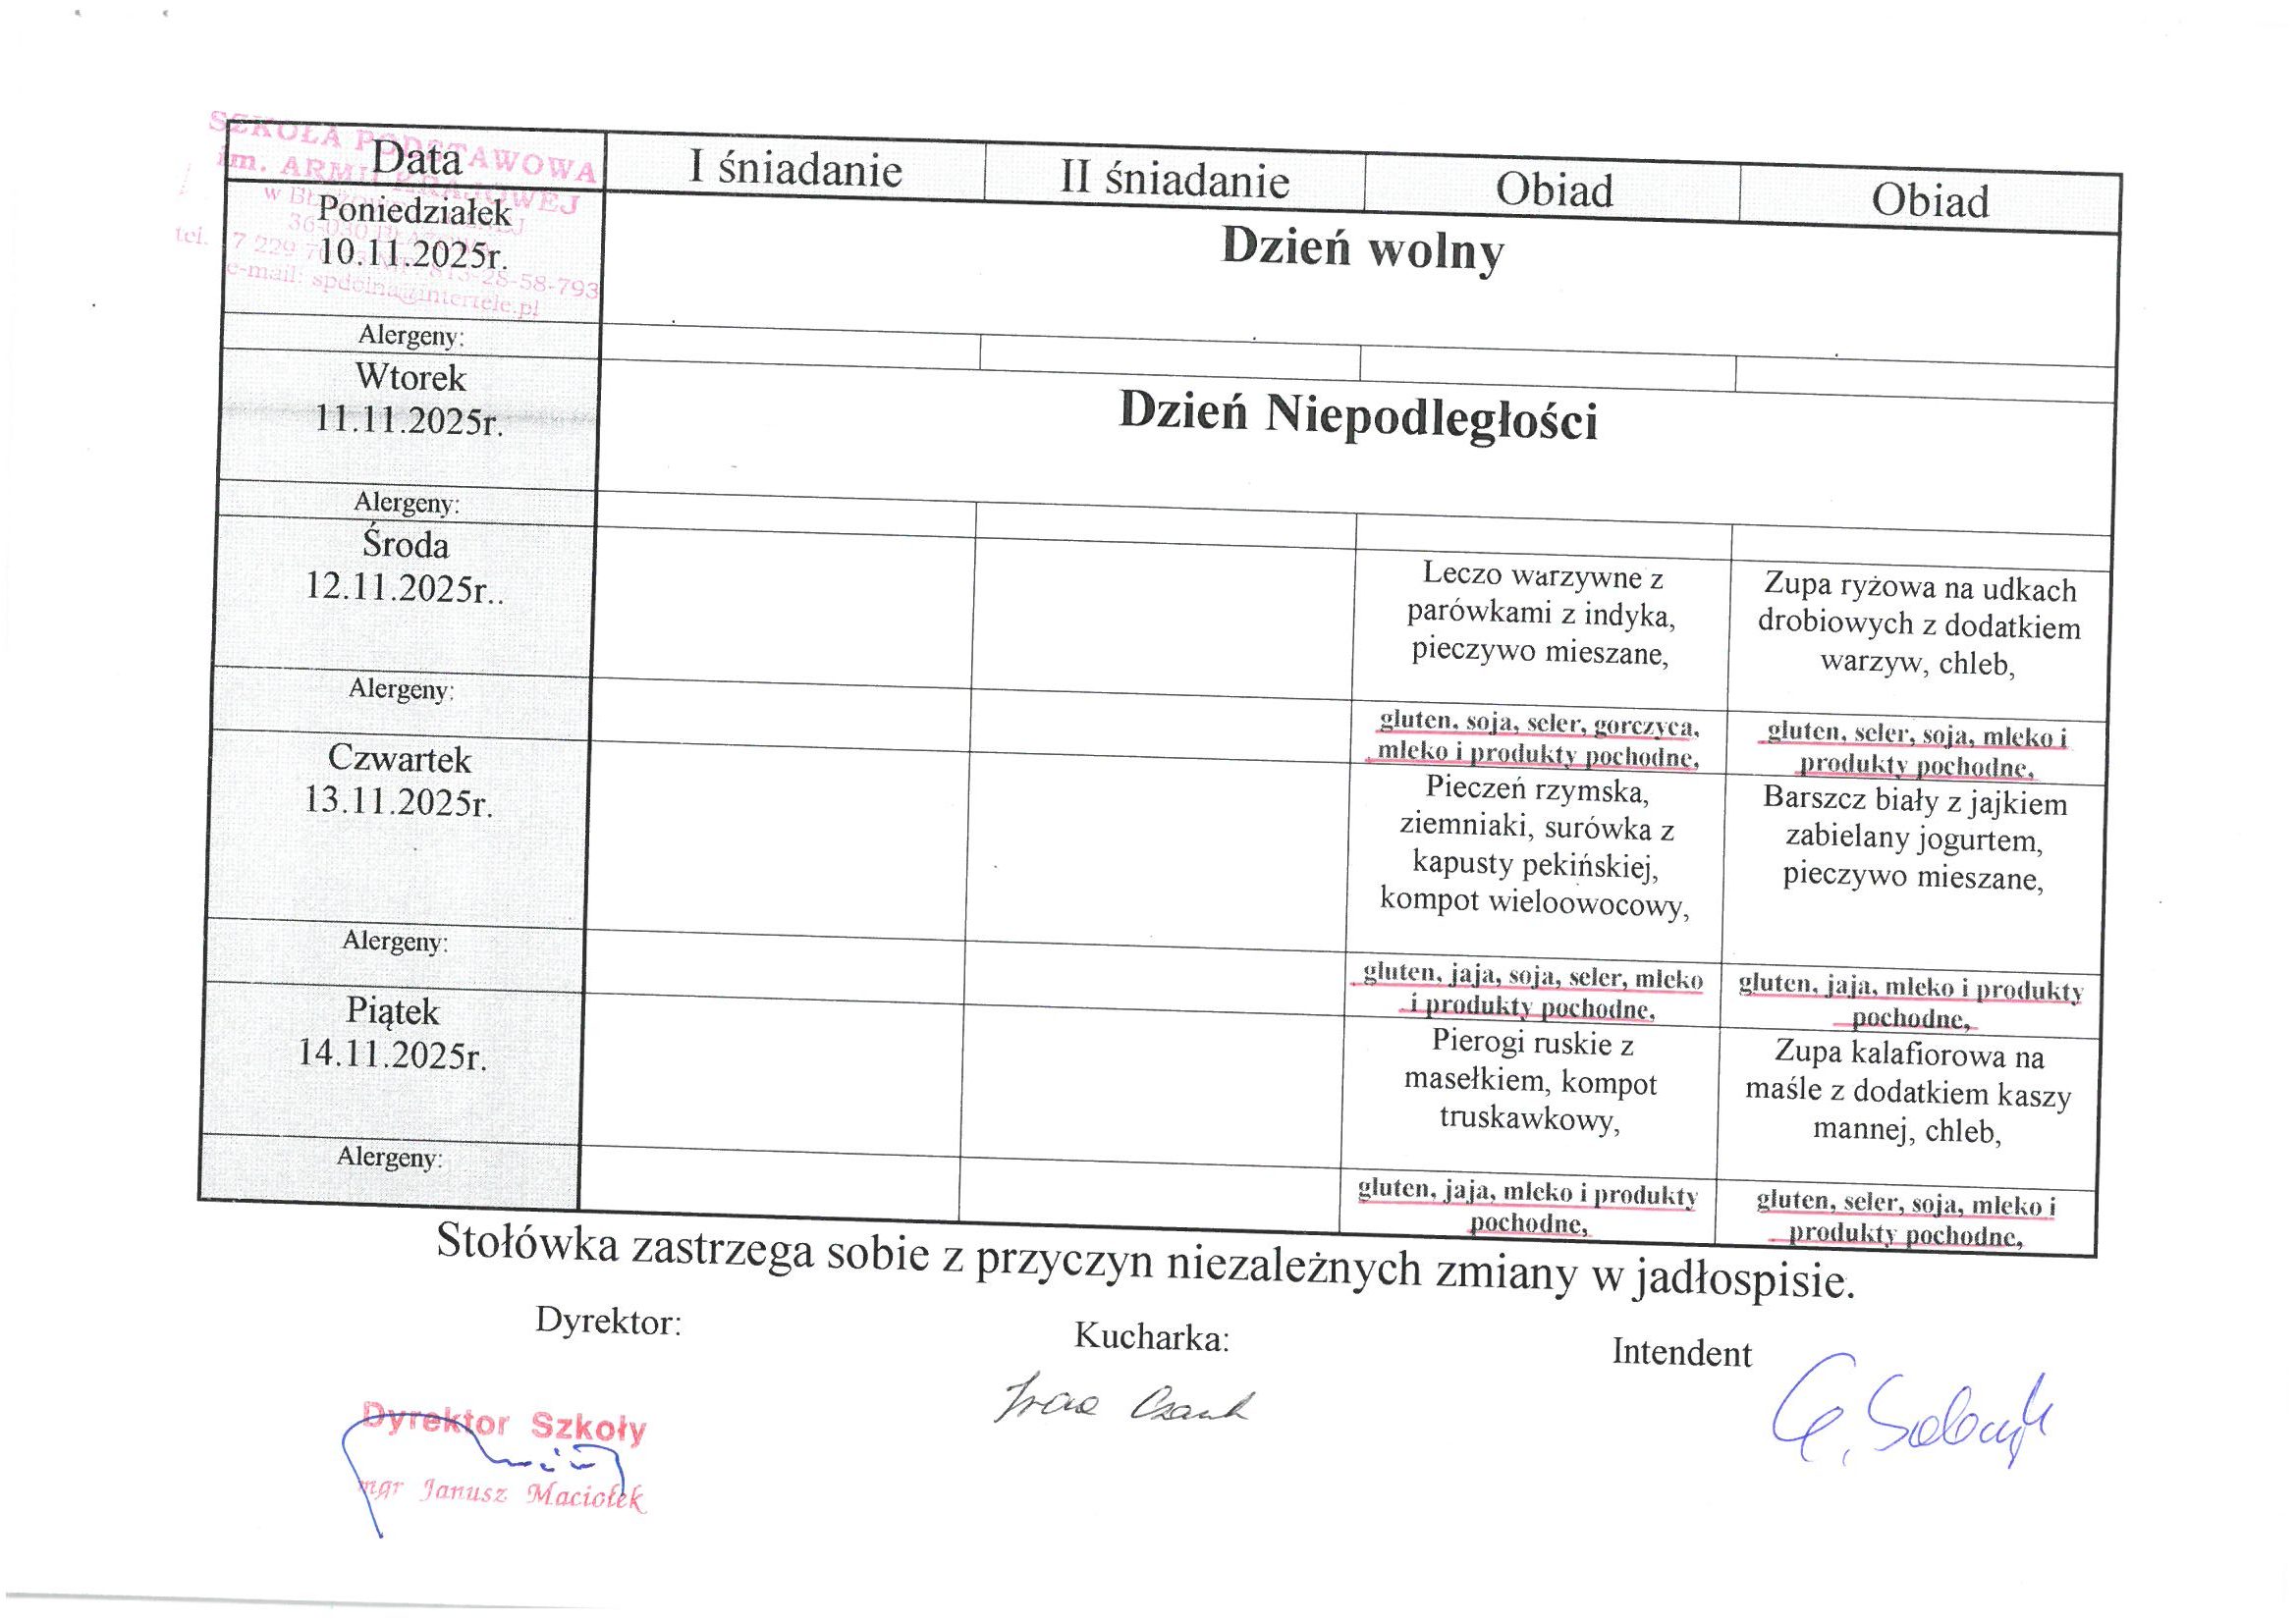 SZKOŁA PODSTAWOWA
im. ARMII KRAJOWEJ
36-030
tel. 7 229 813-28-58-793
e-mail: spdolna@intertele.pl
Data I śniadanie II śniadanie Obiad Obiad
Poniedziałek
10.11.2025r.
Dzień wolny
Alergeny:
Wtorek
11.11.2025r.
Dzień Niepodległości
Alergeny:
Środa
12.11.2025r..
Leczo warzywne z
parówkami z indyka,
pieczywo mieszane,
Zupa ryżowa na udkach
drobiowych z dodatkiem
warzyw, chleb,
Alergeny:
gluten, soja, seler, gorczyca,
mleko i produkty pochodne,
gluten, seler, soja, mleko i
produkty pochodne,
Czwartek
13.11.2025r.
Pieczeń rzymska,
ziemniaki, surówka z
kapusty pekińskiej,
kompot wieloowocowy,
Barszcz biały z jajkiem
zabielany jogurtem,
pieczywo mieszane,
Alergeny:
gluten, jaja, soja, seler, mleko
i produkty pochodne,
gluten, jaja, mleko i produkty
pochodne,
Piątek
14.11.2025r.
Pierogi ruskie z
masełkiem, kompot
truskawkowy,
Zupa kalafiorowa na
maśle z dodatkiem kaszy
mannej, chleb,
Alergeny:
gluten, jaja, mleko i produkty
pochodne,
gluten, seler, soja, mleko i
produkty pochodne,
Stołówka zastrzega sobie z przyczyn niezależnych zmiany w jadłospisie.
Dyrektor: Kucharka: Intendent
Dyrektor Szkoły
mgr Janusz Maciołek